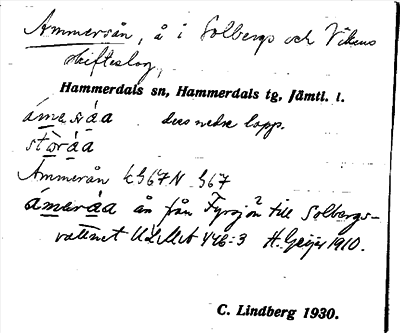 Ammersån, å i Solbergs och Vikens
skifteslag,
Hammerdals sn, Hammerdals tg, Jämtl. l.
ámeråa dess nedre lopp.
stòráa
Ammerån k 367 N 367
ámeråa ån från Fyrsjön till Solbergs-
vattnet ULMA 446:3 H. Geijer 1910.
C. Lindberg 1930.